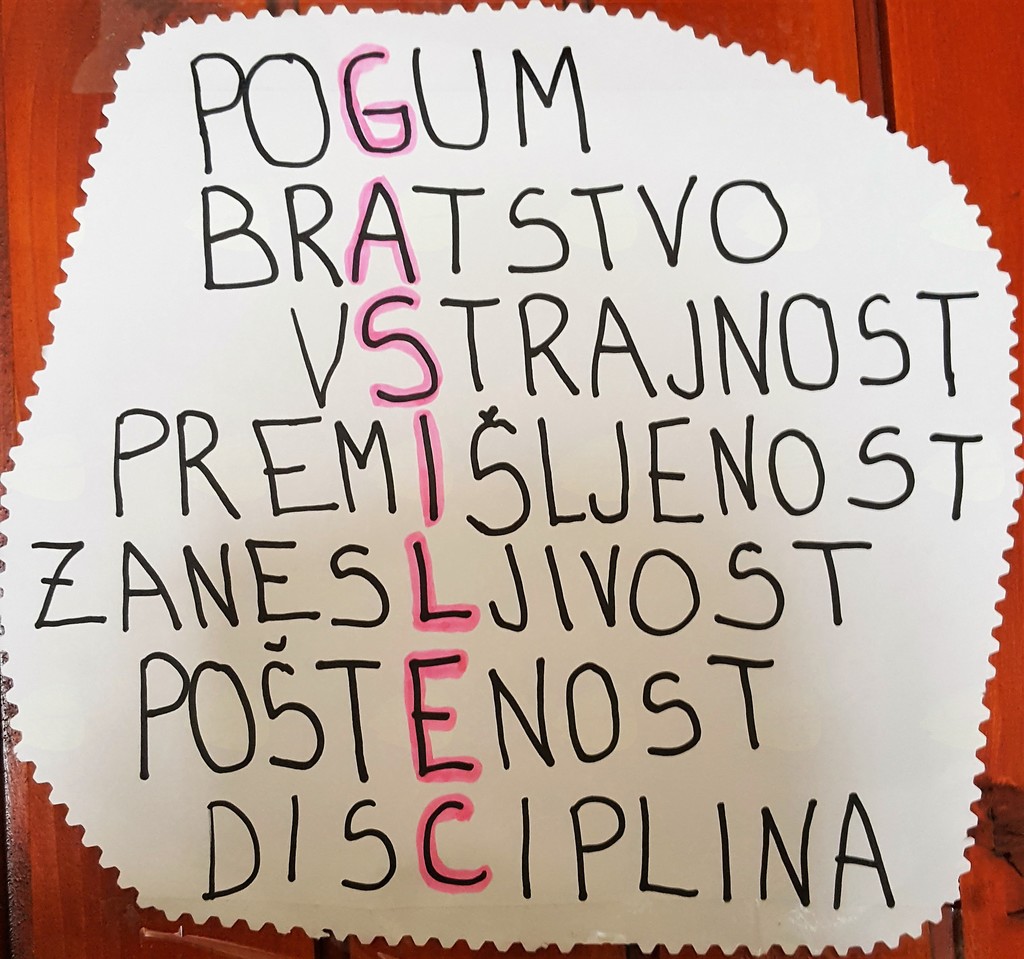 POGUM
BRATSTVO
VSTRAJNOST
PREMIŠLJENOST
ZANESLJIVOST
POŠTENOST
DISCIPLINA